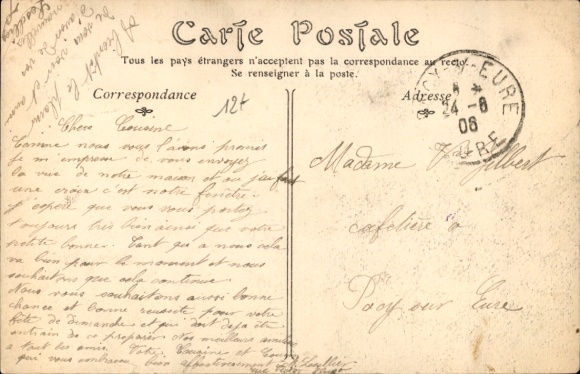 Carte Postale
Tous les pays étrangers n'acceptent pas la correspondance au recto.
Se renseigner à la poste.
Correspondance
Adresse
12+
PACY-S-EURE
24-8
08
EURE
Chère Cousine
Comme nous vous l'avons promis
je m'empresse de vous envoyez
la vue de notre maison et ou j'ai fait
une croix c'est notre fenêtre.
J'espère que vous vous portez
toujours très bien ainsi que votre
petite bonne. Tant qu'a nous cela
va bien pour le moment et nous
souhaitons que cela continue.
Nous vous souhaitons aussi bonne
chance et bonne reussite pour votre
fête de Dimanche et qui doit deja être
entrain de ce preparer. Nos meilleurs amitiés
a tout les amis. Votre Cousine et Cousin
qui vous embrasse bien affectueusement
rue Victor Hugo
Madame V. Gilbert
cafetière a
Pacy sur Eure